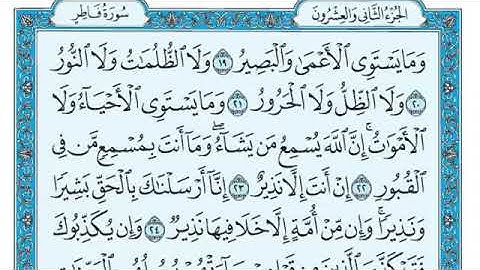 الجزء الثاني والعشرون سورة فاطر
وَمَا يَسْتَوِى ٱلْأَعْمَىٰ وَٱلْبَصِيرُ ١٩ وَلَا ٱلظُّلُمَٰتُ وَلَا ٱلنُّورُ
٢٠ وَلَا ٱلظِّلُّ وَلَا ٱلْحَرُورُ ٢١ وَمَا يَسْتَوِى ٱلْأَحْيَآءُ وَلَا
ٱلْأَمْوَٰتُ ۚ إِنَّ ٱللَّهَ يُسْمِعُ مَن يَشَآءُ ۖ وَمَآ أَنتَ بِمُسْمِعٍ مَّن فِى
ٱلْقُبُورِ ٢٢ إِنْ أَنتَ إِلَّا نَذِيرٌ ٢٣ إِنَّآ أَرْسَلْنَٰكَ بِٱلْحَقِّ بَشِيرًا
وَنَذِيرًا ۚ وَإِن مِّنْ أُمَّةٍ إِلَّا خَلَا فِيهَا نَذِيرٌ ٢٤ وَإِن يُكَذِّبُوكَ